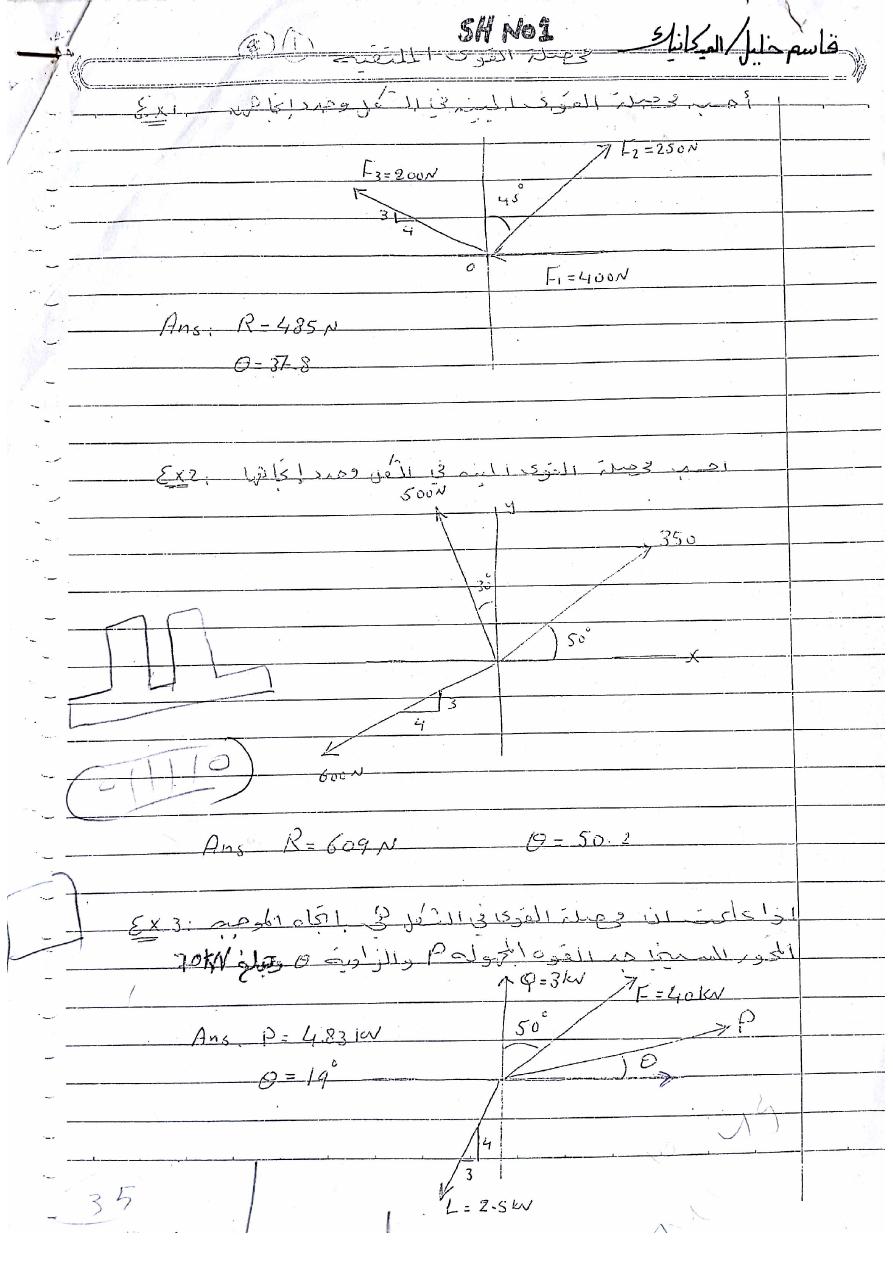 SH No1
قاسم خليل/الميكانيك
محصلة القوى الملتقية ①
Ex1: أحسب محصلة القوى المبينه في الشكل وحدد إتجاهها
F2=250N
F3=200N
45°
3
4
0
F1=400N
Ans: R=485N
θ=37.8
Ex2: احسب محصلة القوى المبينه في الشكل وحدد إتجاهها
500N
y
350
30°
50°
x
3
4
600N
Ans R=609N θ=50.2
Ex3: اذا علمت ان محصلة القوى في الشكل هي باتجاه الموجب
المحور السيني جد القوه المجهوله P والزاوية θ وتبلغ 70kN
Q=3kN
F=40kN
50°
P
Ans. P=4.83kN
θ
θ=19°
4
3
35
L=2.5kN